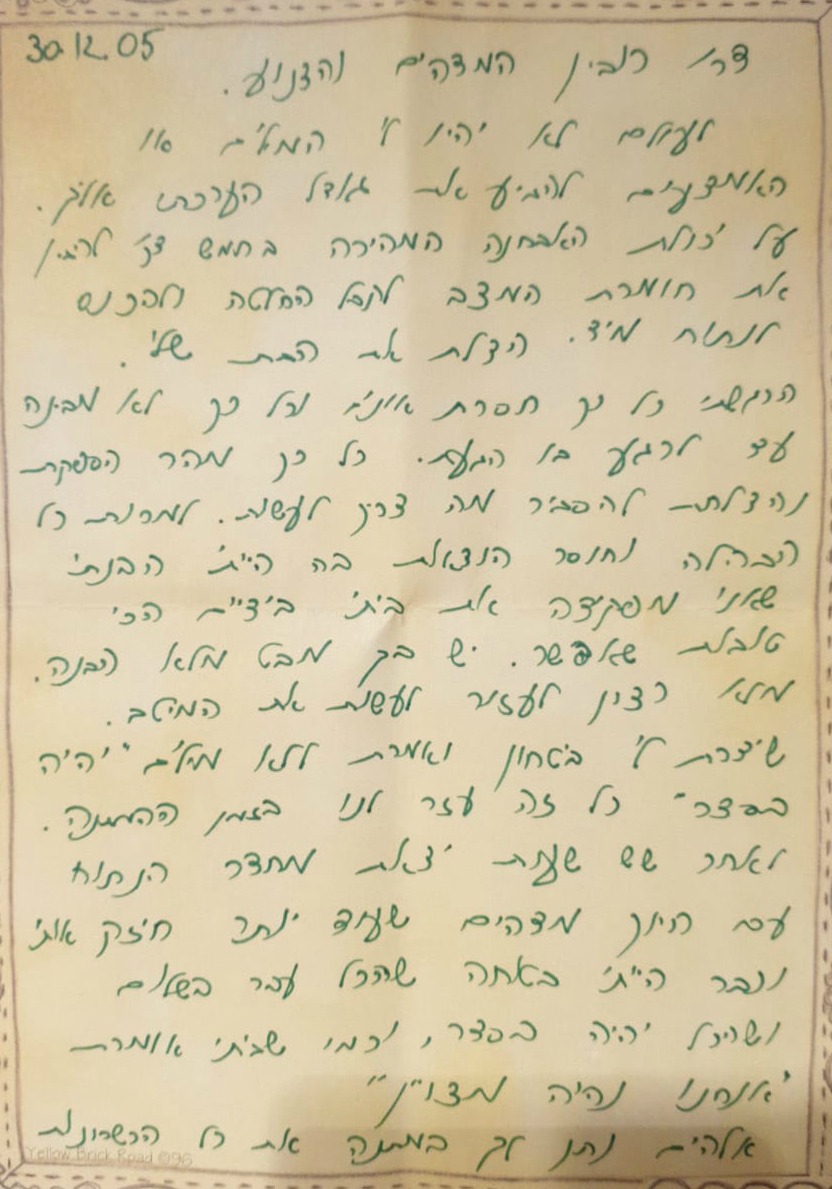 30.12.05
דר' רובין המדהים והצנוע.
לעולם לא יהיו לי המילים או
האמצעים להביע את גודל הערכתי אליך.
על יכולת האבחנה המהירה בחמש דק' להבין
את חומרת המצב לקבל החלטה ולהכנס
לנתוח מיד. הצלת את הבת שלי.
הרגשתי כל כך חסרת אונים וכל כך לא מבינה
עד לרגע בו הגעת. כל כך מהר הספקת
והצלחת להסביר מה צריך לעשות. למרות כל
הבהלה וחוסר הוצאות בה הייתי הבנתי
שאני מפקידה את ביתי בידיים הכי
טובות שאפשר. יש בך מבט מלא הבנה.
מלא רצון לעזור לעשות את המיטב.
שיצרת לי בטחון ואמרת ללא מילים "יהיה
בסדר" כל זה עזר לנו בזמן ההמתנה.
לאחר שש שעות יצאת מחדר הנתוח
עם חיוך מדהים שעוד יותר חיזק אותי
וכבר הייתי בטוחה שהכל עבר בשלום
ושהכל יהיה בסדר, וכמו שביתי אומרת
"אנחנו נהיה מצויין"
אלהים נתן לך במתנה את כל הכשרונות
Yellow Brick Road ©96